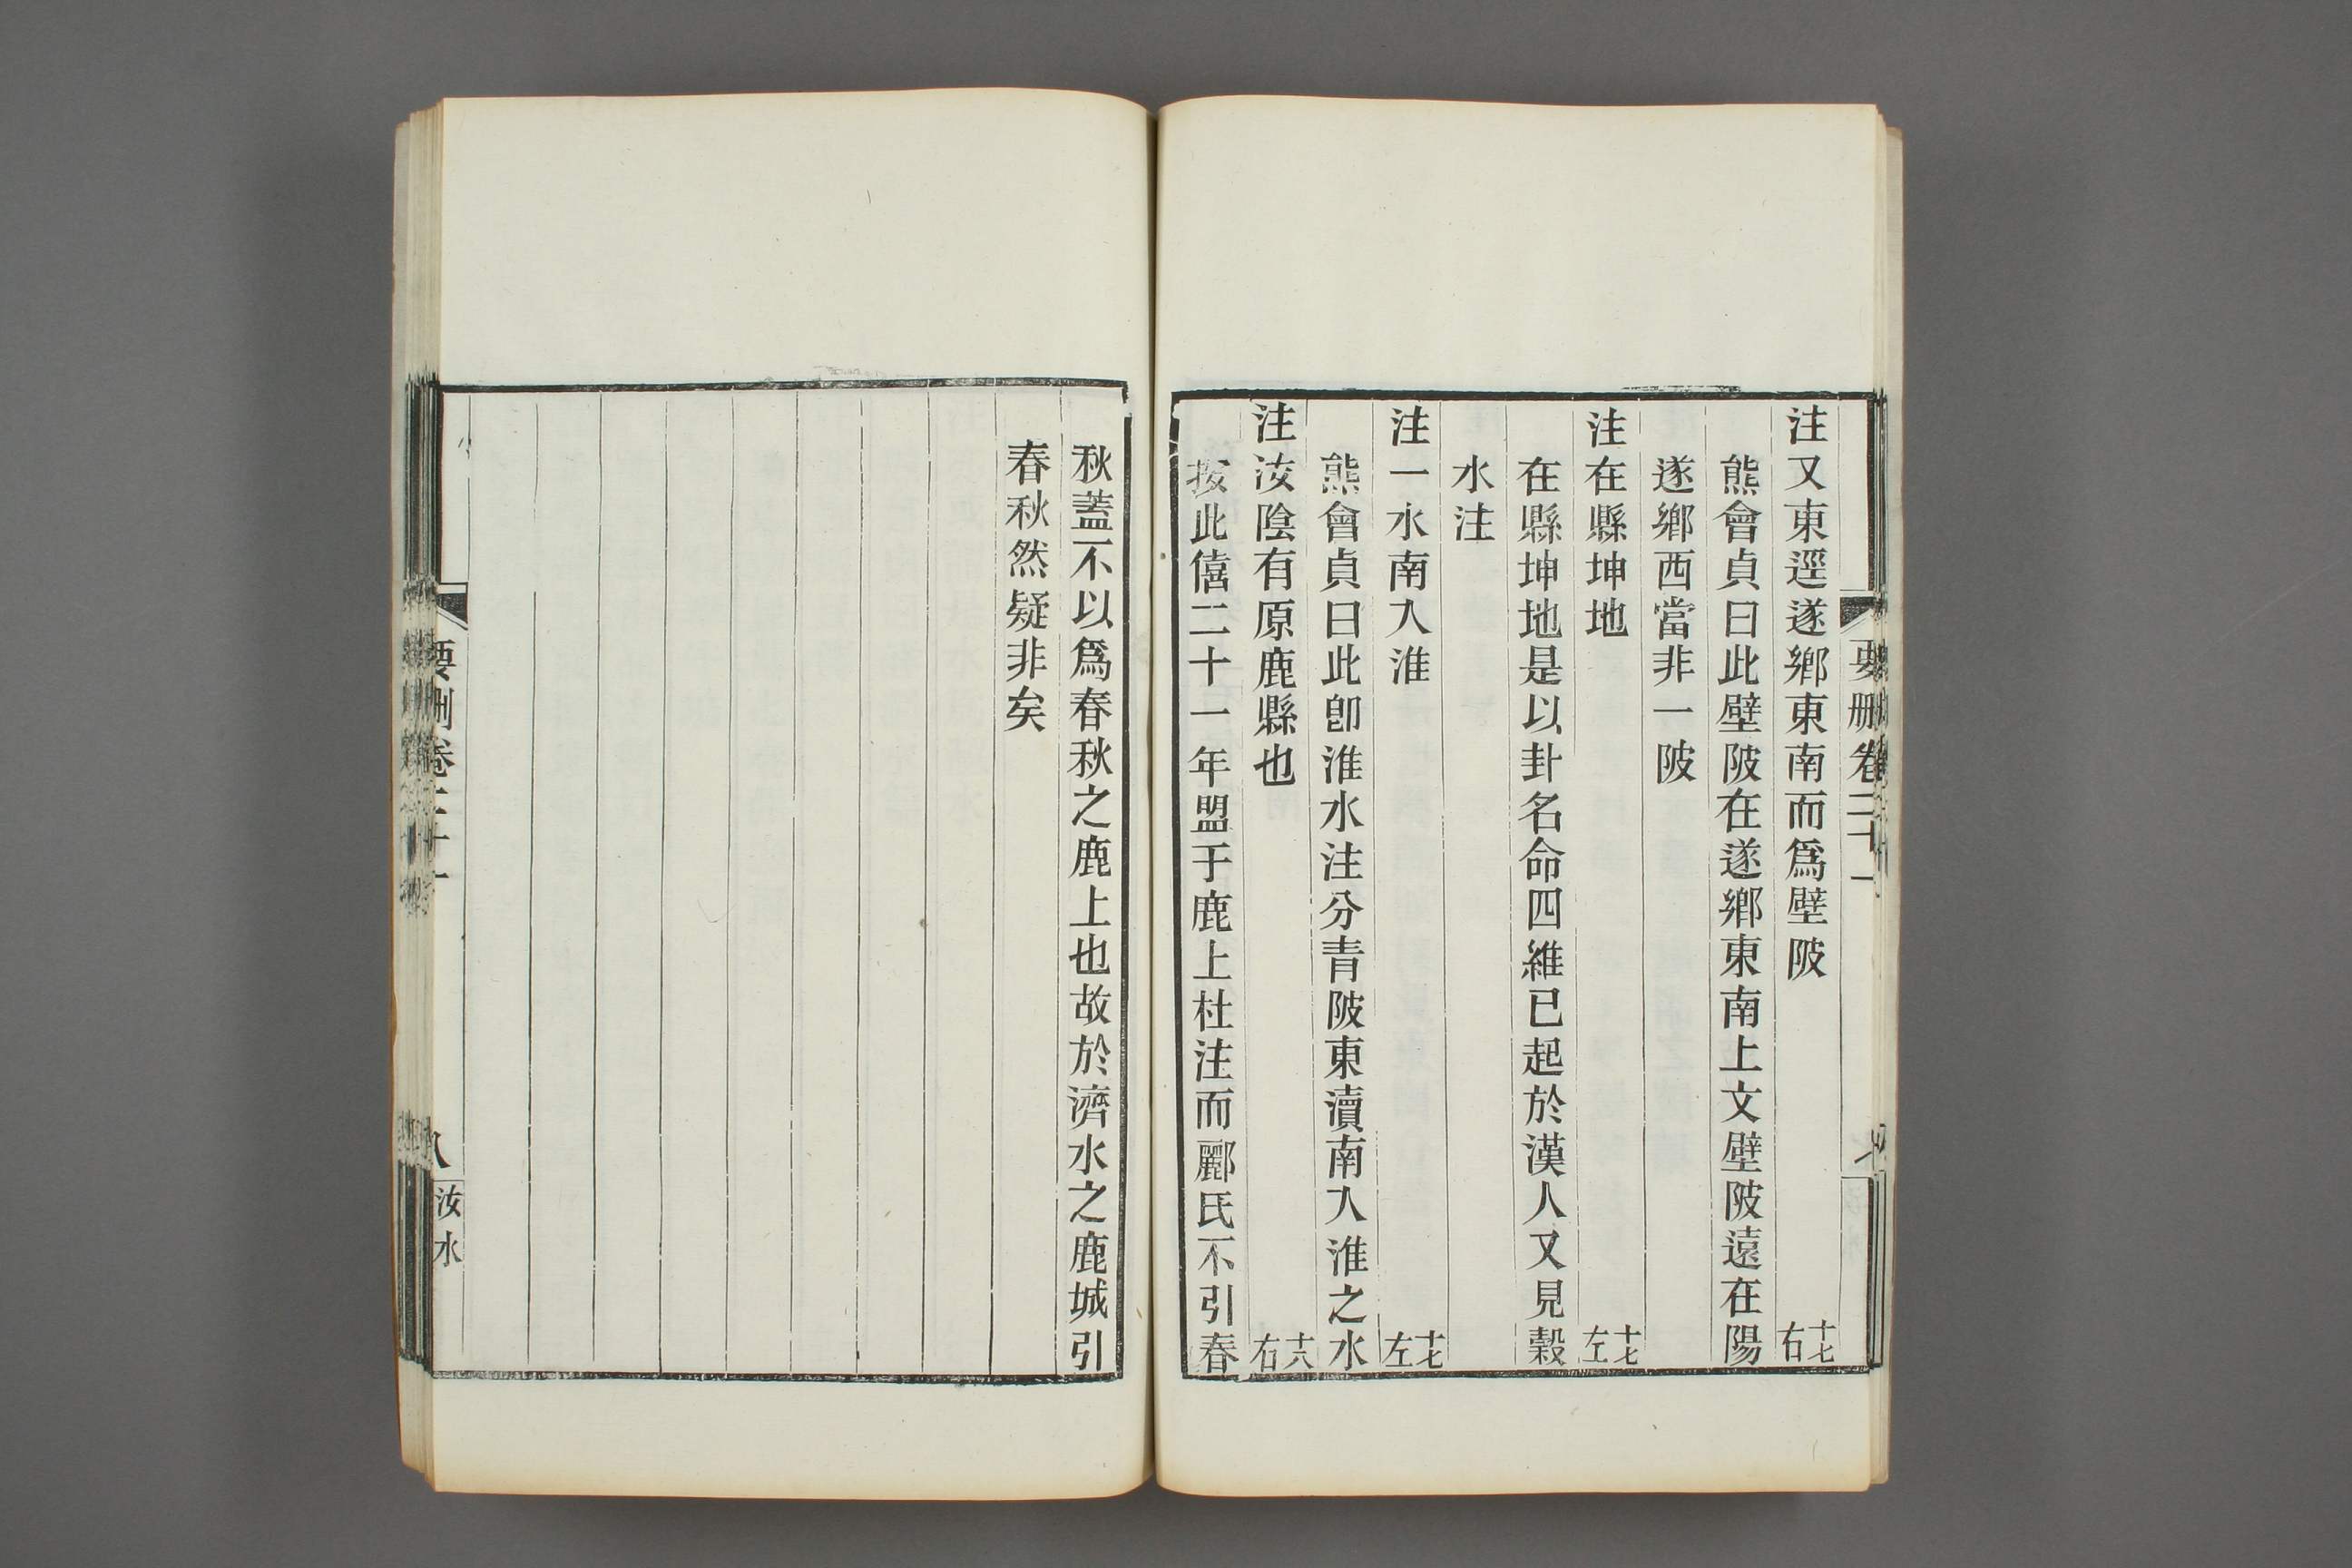 要刪卷二十一
注又東逕遂鄉東南而爲壁陂 十七右
熊會貞曰此壁陂在遂鄉東南上文壁陂遠在陽
遂鄉西當非一陂
注在縣坤地 十七左
在縣坤地是以卦名命四維已起於漢人又見穀
水注
注一水南入淮 十七左
熊會貞曰此卽淮水注分青陂東瀆南入淮之水
注汝陰有原鹿縣也 十八右
按此僖二十一年盟于鹿上杜注而酈氏不引春
秋蓋不以爲春秋之鹿上也故於濟水之鹿城引
春秋然疑非矣
要刪卷二十一
八 汝水